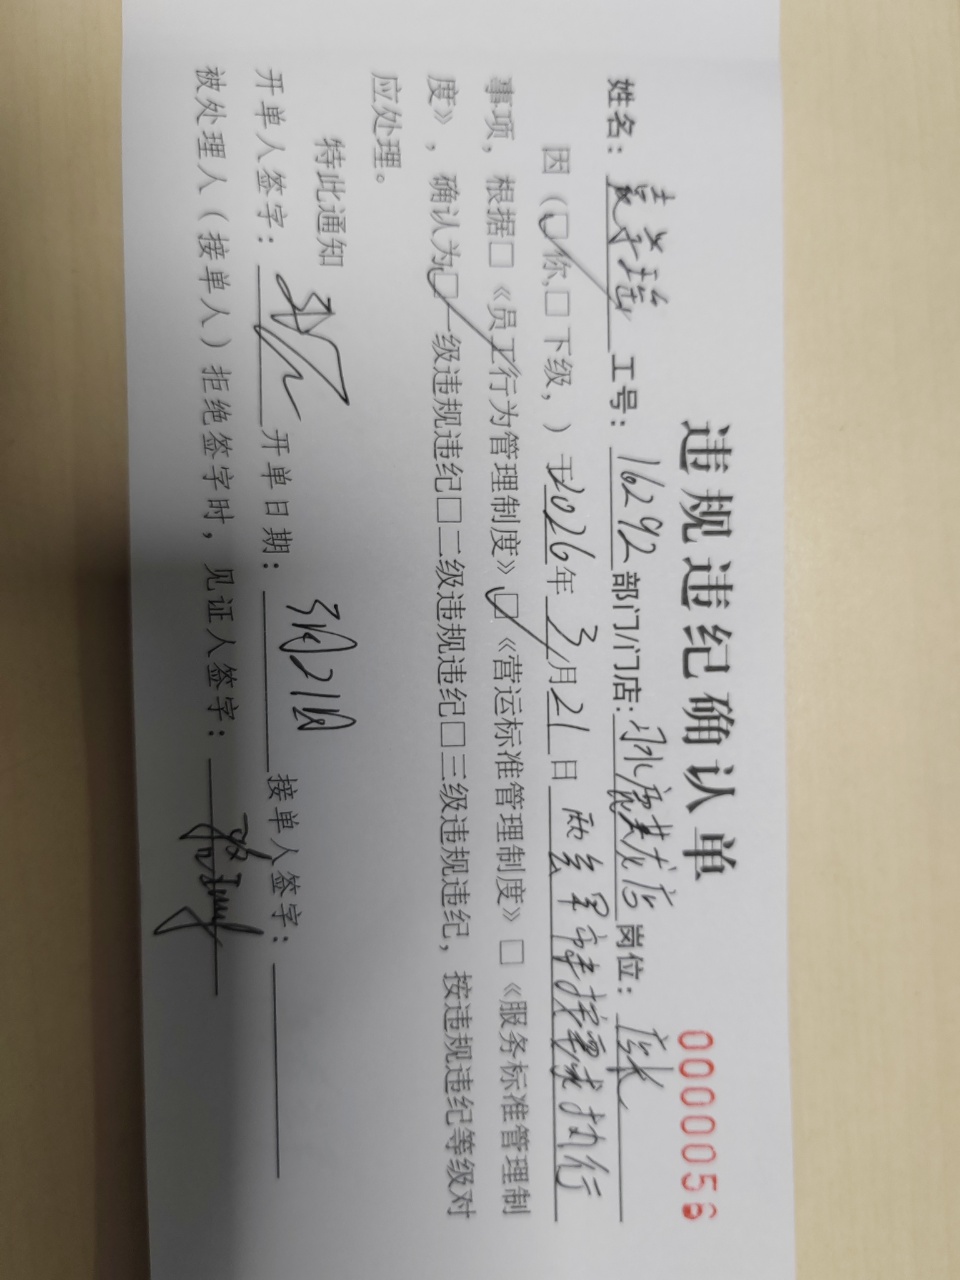 违规违纪确认单
0000056
姓名： 工号：16292 部门/门店： 店 岗位：店长
因（☑你，□下级，）于2026年3月21日 未按要求执行
事项，根据□《员工行为管理制度》☑《营运标准管理制度》□《服务标准管理制
度》，确认为☑一级违规违纪□二级违规违纪□三级违规违纪，按违规违纪等级对
应处理。
特此通知
开单人签字： 开单日期：3月21日 接单人签字：
被处理人（接单人）拒绝签字时，见证人签字：